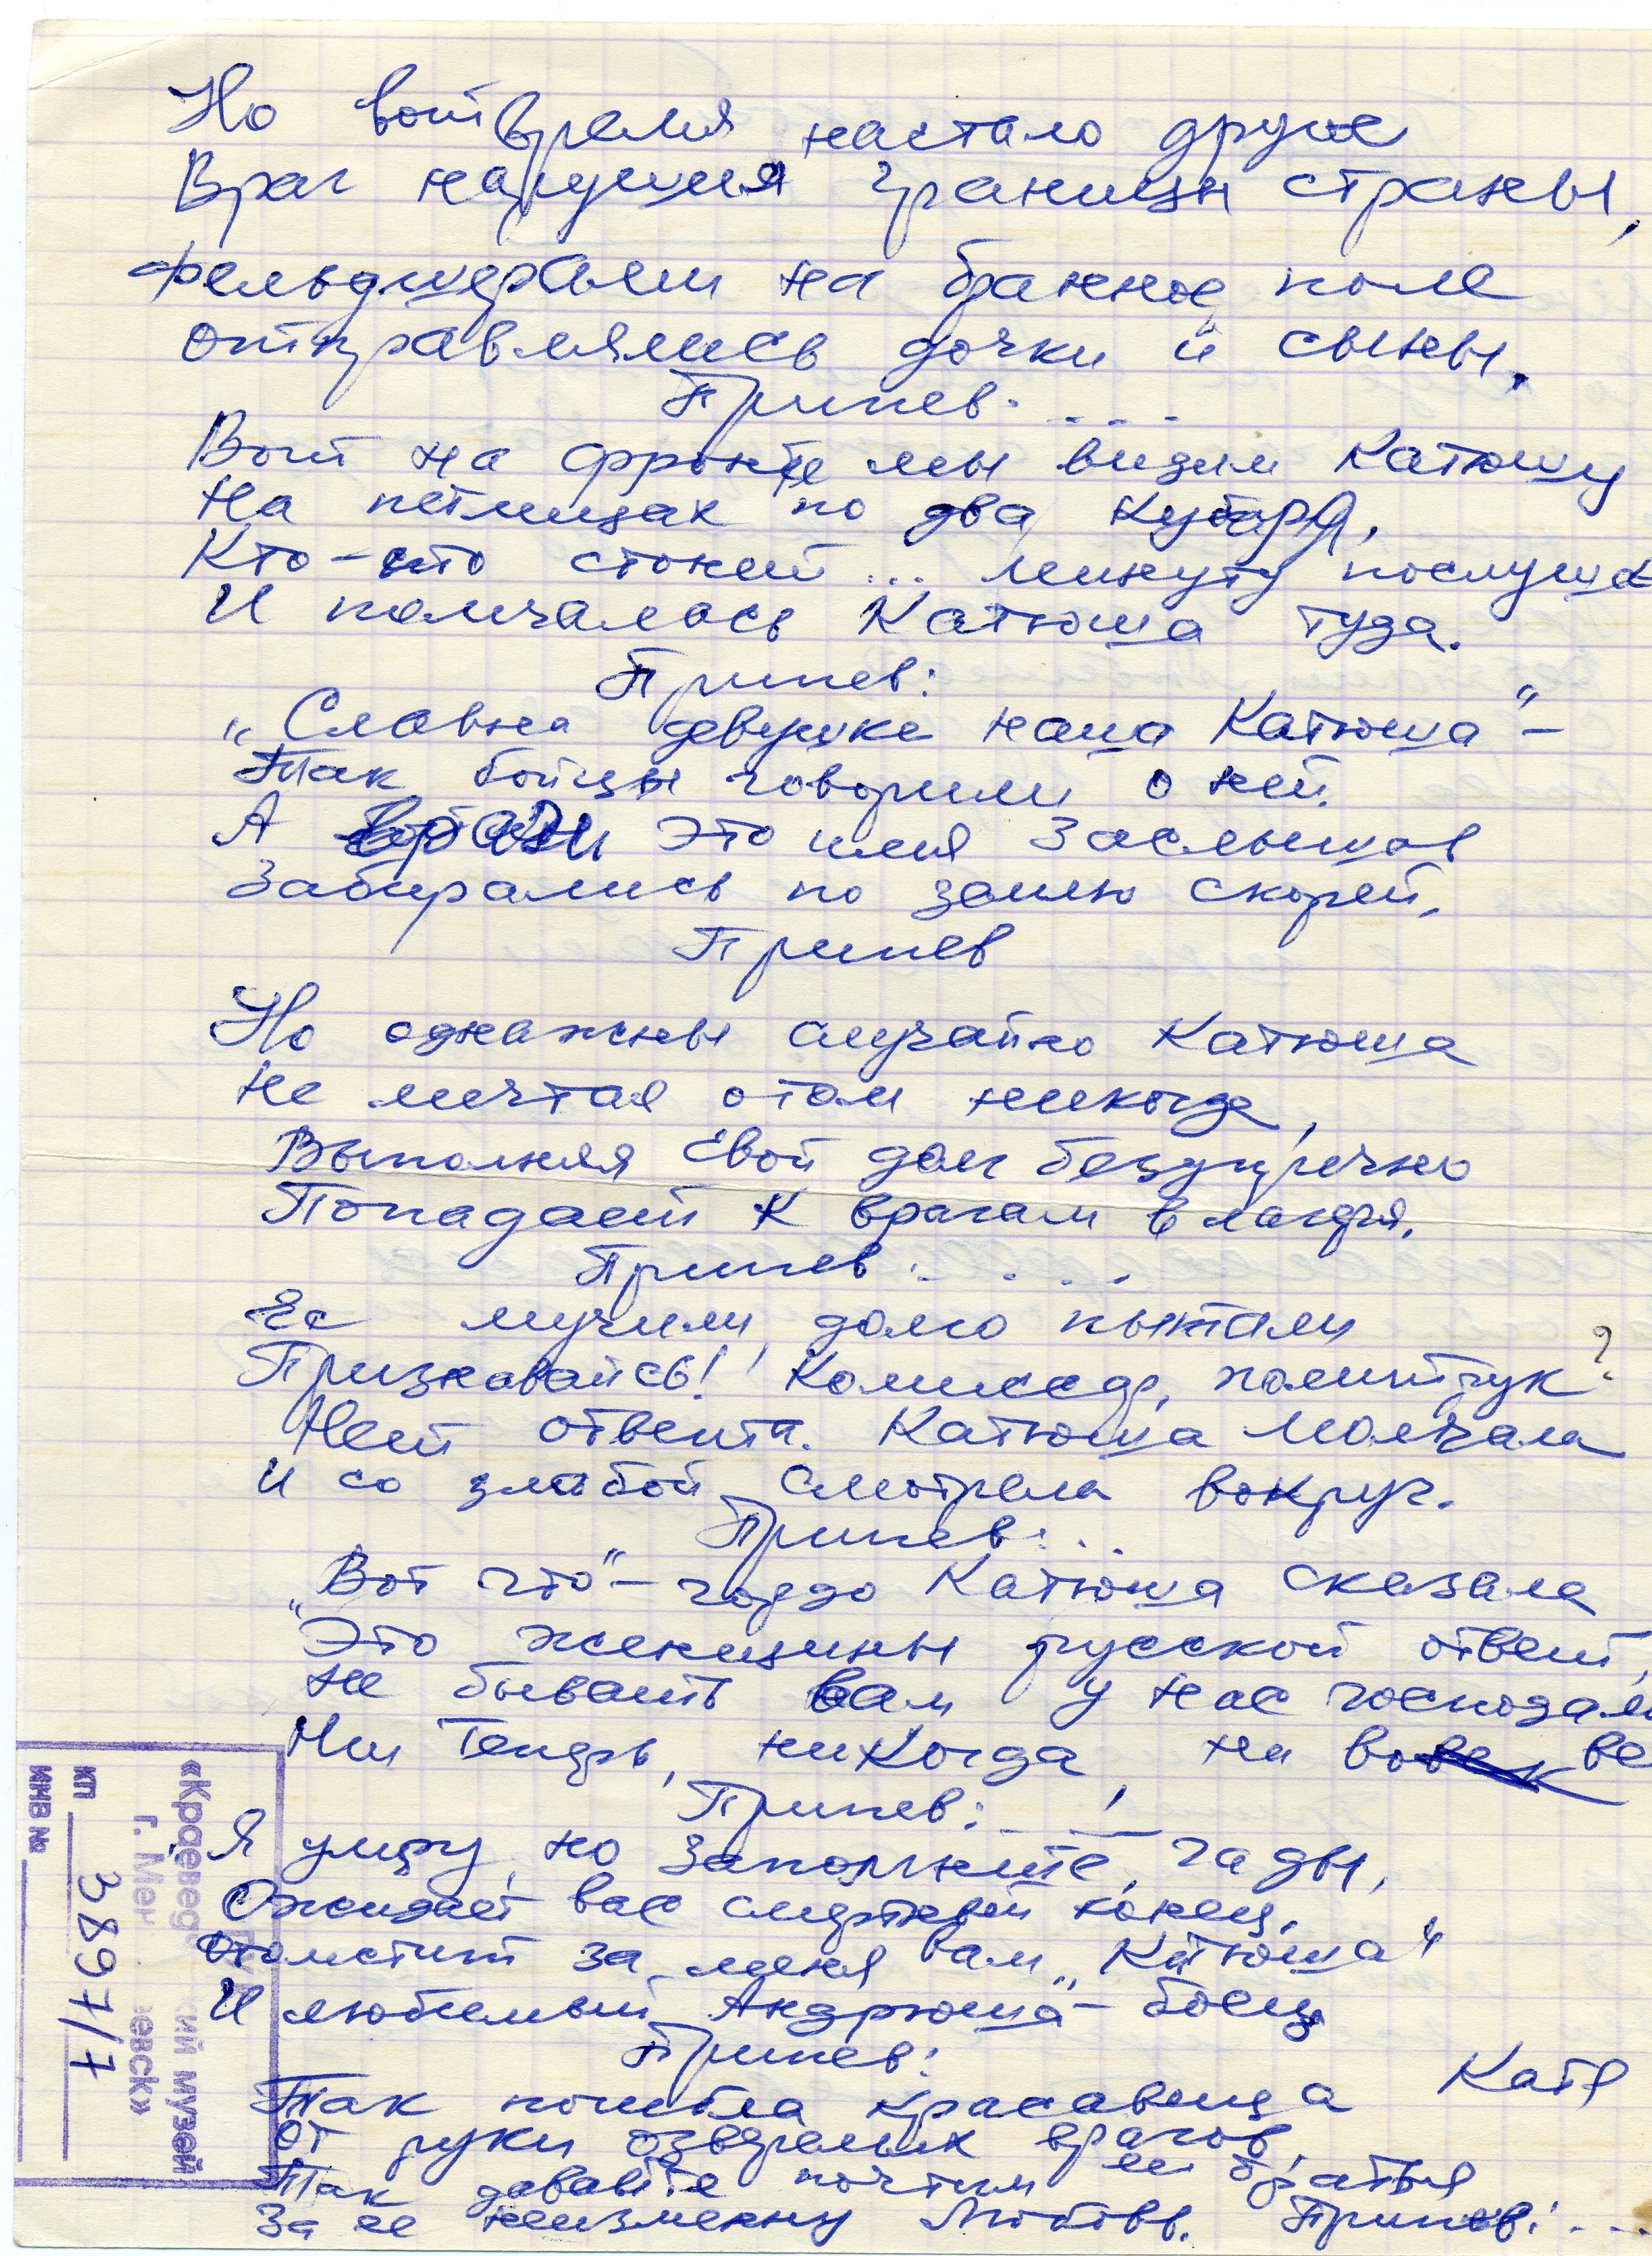 Но вот время настало другое
Враг нарушил границы страны,
Фельдшерами на бранное поле
Отправлялись дочки и сыны.
Припев. . . . .
Вот на фронте мы видим Катюшу
На петлицах по два кубаря,
Кто-то стонет ... минуту послушав
И помчалась Катюша туда.
Припев:
„Славна девушка наша Катюша" –
Так бойцы говорили о ней.
А враги это имя заслышав
Забирались по землю скорей.
Припев
Но однажды случайно Катюша
Не мечтая о том никогда,
Выполняя свой долг безупречно
Попадает к врагам в лагеря.
Припев: . . . .
Ее мучили, долго пытали
Признавайся! Комиссар, политрук?
Нет ответа. Катюша молчала
И со злобой смотрела вокруг.
Припев: . .
„Вот что" – гордо Катюша сказала
„Это женщины русской ответ,
Не бывать вам у нас господам
Ни теперь, никогда, ни во ве
Припев: _ _
Я умру, но запомните, гады,
Ожидает вас смертный конец.
Отомстит за меня вам „Катюша"
И любимый Андрюша – боец
Припев:
Так погибла красавица Катя
От руки озверелых врагов,
Так давайте почтим ее братья
За ее неизменну любовь. Припев: . . .
«Краевед кий музей
г. Мен евск»
КП 3897/7
ИНВ №